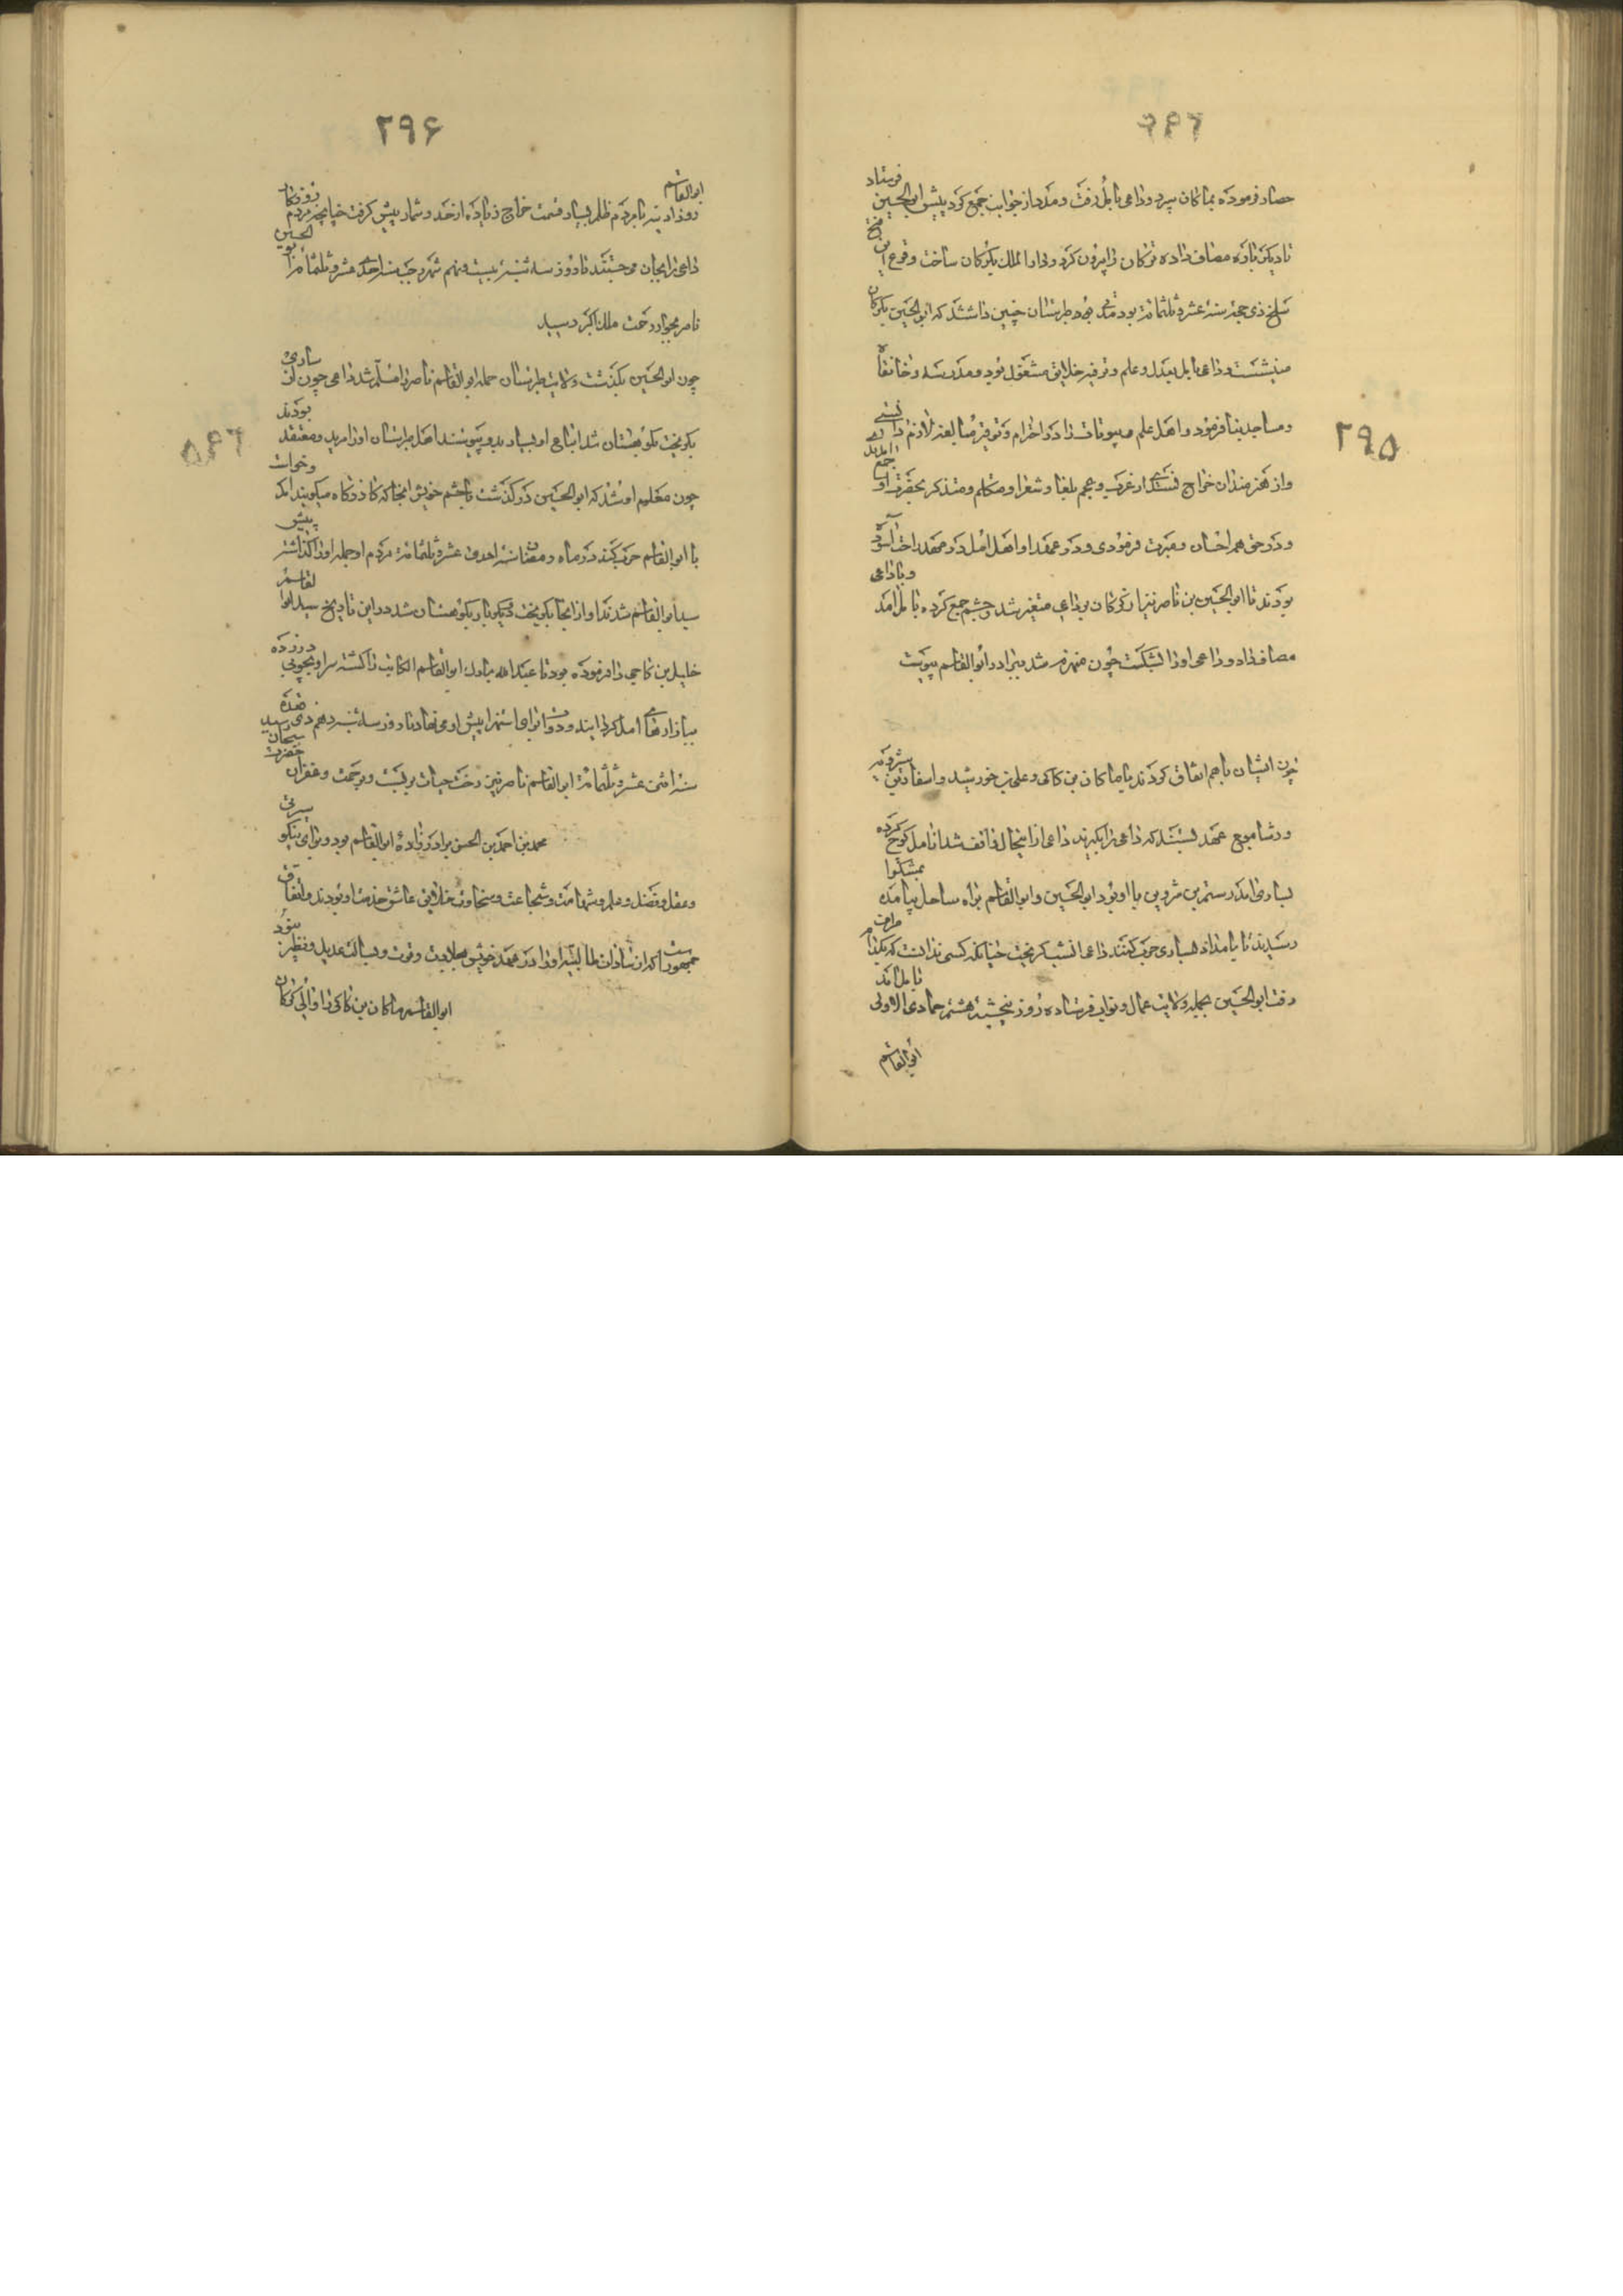 ۲۹۵
حصار فرموده بما کان سپرد و داعی بامل رفت و مدد از جوانب جمع کرد پیش ابوالحسین فرستاد
تا دیگر باره مصاف داده ترکان را بیرون کرد و دارالملک بگرگان ساخت وقوع این فتح
سلخ ذی حجه سنه عشر و ثلثمائه بود طبرستان چنین داشتند که ابوالحسین بگرگان
می نشست و داعی بامل بعدل و علم و ترفیه خلایق مشغول بود و مدرسه و خانقاه
و مساجد بنا فرمود و اهل علم و بیوتات را در احترام و توقیر مبالغه لازم دانستی
و از هنرمندان خراج نستدی از عرب و عجم بلغا و شعرا و متکلم و متذکر بحضرت او جمع آمدند
و در حق هم احسان و مبرت فرمودی و در عهد او اهل امل در مهد راحت آسوده
بودند تا ابوالحسین بن ناصر نیز از گرگان بر داعی متغیر شد و حشم جمع کرده بامل آمد و با داعی
مصاف داد و داعی او را بشکست چون منهزم شد ببرادر ابوالقاسم پیوست
چون ایشان باهم اتفاق کردند با ما کان بن کاکی و علی بن خورشید و اسفار بن شیرویه
و رشاموج عهد بستند که داعی را بگیرند داعی از اینحال واقف شد از امل کوچ کرده
بساری آمد رستم بن شروین با او بود ابوالحسین و ابوالقاسم براه ساحل بیامده
رسیدند تا بامداد بساری حرب کنند داعی شب بگریخت چنانکه کسی ندانست که بکدام طرف
رفت ابوالحسین بجمله ولایت عمال و نواب فرستاده روز پنجشنبه هشتم جمادی الاولی بامل آمد
ابوالقاسم
۲۹۶
ابوالقاسم روز ادینه با مردم ظلم بسیار قسمت خراج زیاده از حد و شمار پیش گرفت چنانچه مردم روزگار
داعی را بجان می جستند تا روز سه شنبه بیست و نهم شهر رجب سنه احدی عشر و ثلثمائه ابوالحسین
ناصر بجوار رحمت ملک اکبر رسید
چون ابوالحسین بگذشت ولایت طبرستان جمله ابوالقاسم ناصر را مسلم شد داعی چون از ساری
بگریخت بکوهستان شد اتباع او بسیار بدو پیوستند اهل طبرستان او را مرید و معتقد بودند
چون معلوم او شد که ابوالحسین درگذشت با حشم خویش انجا که کازرگاه میگویند آمد و خواست
با ابوالقاسم حرب کند در ماه رمضان سنه احدی عشر و ثلثمائه مردم او جمله او را گذاشته پیش
سید ابوالقاسم شدند او از انجا بگریخت دیگر بار بکوهستان شد در این تاریخ سید ابوالقاسم
خلیل بن کاجی را فرموده بود تا عبدالله مبارک ابوالقاسم الکاتب را کشته سر او بچوبی در زده
ببازارهای امل گردانیدند
سنه اثنی عشر و ثلثمائه ابوالقاسم ناصر نیز رخت حیات بربست و برحمت و غفران حضرت سبحان رسید
محمد بن احمد بن الحسن برادرزاده ابوالقاسم بود و برای نیکو سیرتی
و عقل و فضل و علم و شهامت و شجاعت و سخاوت خلایق عاشق خدمت او بودند و اتفاق
جمهور است که از سادات طالبیه او را در عهد خویش بجلادت و قوت و بسالت عدیل و نظیر نبود
ابوالقاسم ما کان بن کاکی را والی گرگان